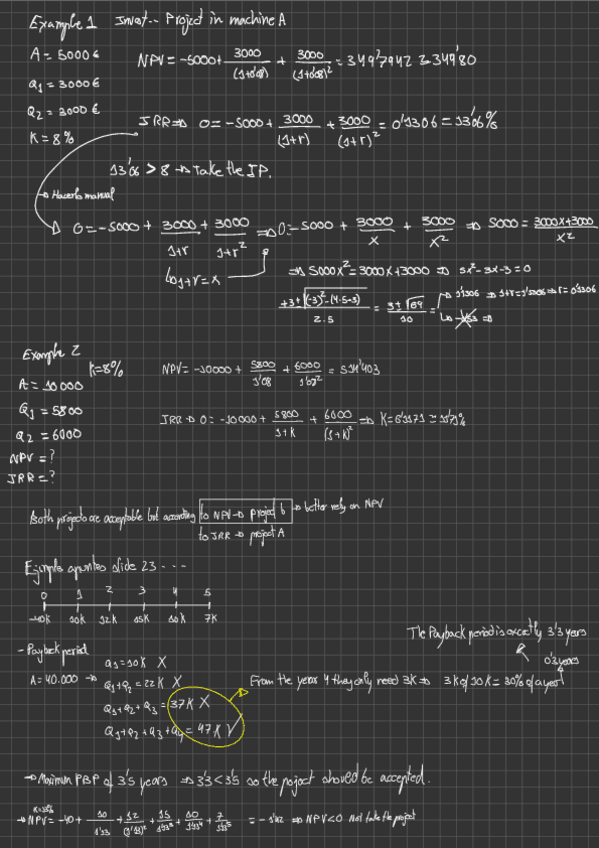 Example 1 Invest.. Project in machine A
A = 5000€
Q1 = 3000€
Q2 = 3000€
K = 8%
NPV = -5000 + 3000/(1+0'08) + 3000/(1+0'08)² = 349'7942 ≈ 349'80
IRR ⇒ 0 = -5000 + 3000/(1+r) + 3000/(1+r)² = 0'1306 = 13'06%
13'06 > 8 → Take the IP.
→ Hacerlo manual
0 = -5000 + 3000/1+r + 3000/1+r² ⇒ 0 = -5000 + 3000/x + 3000/x² ⇒ 5000 = 3000x+3000/x²
↳ 1+r = x
⇒ 5000x² = 3000x + 3000 ⇒ 5x² - 3x - 3 = 0
+3 ± √(-3)² - (4·5·-3) / 2·5 = 3 ± √69 / 10 = 1'1306 ⇒ 1+r = 1'1306 ⇒ r = 0'1306
Example 2
K = 8%
A = 10000
Q1 = 5800
Q2 = 6000
NPV = ?
IRR = ?
NPV = -10000 + 5800/1'08 + 6000/1'08² = 514'403
IRR → 0 = -10000 + 5800/1+K + 6000/(1+K)² ⇒ K = 0'1171 ≈ 11'71%
Both projects are acceptable but according to NPV → project b → better rely on NPV
to IRR → project A
Ejemplo apuntes slide 23 ...
0 1 2 3 4 5
-40K 10K 12K 15K 10K 7K
- Payback period
A = 40.000 → Q1 = 10K X
Q1 + Q2 = 22K X
Q1 + Q2 + Q3 = 37K X
Q1 + Q2 + Q3 + Q4 = 47K √
The Payback period is exactly 3'3 years
0'3 years
From the year 4 they only need 3K ⇒ 3K of 10K = 30% of a year
→ Maximum PBP of 3'5 years ⇒ 3'3 < 3'5 so the project should be accepted.
K = 13%
→ NPV = -40 + 10/1'13 + 12/(1'13)² + 15/1'13³ + 10/1'13⁴ + 7/1'13⁵ = -1'42 ⇒ NPV < 0 Not take the project